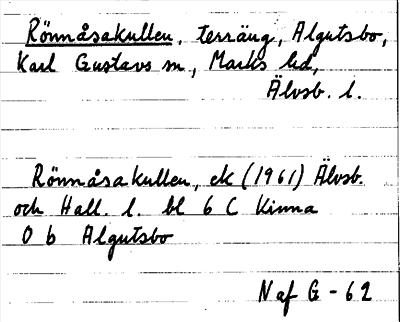 Rönnåsakullen, terräng, Algutsbo,
Karl Gustavs sn, Marks hd,
Älvsb. l.
Rönnåsakullen, ek (1961) Älvsb.
och Hall. l. bl 6 C Kinna
0 b Algutsbo
N af G - 62